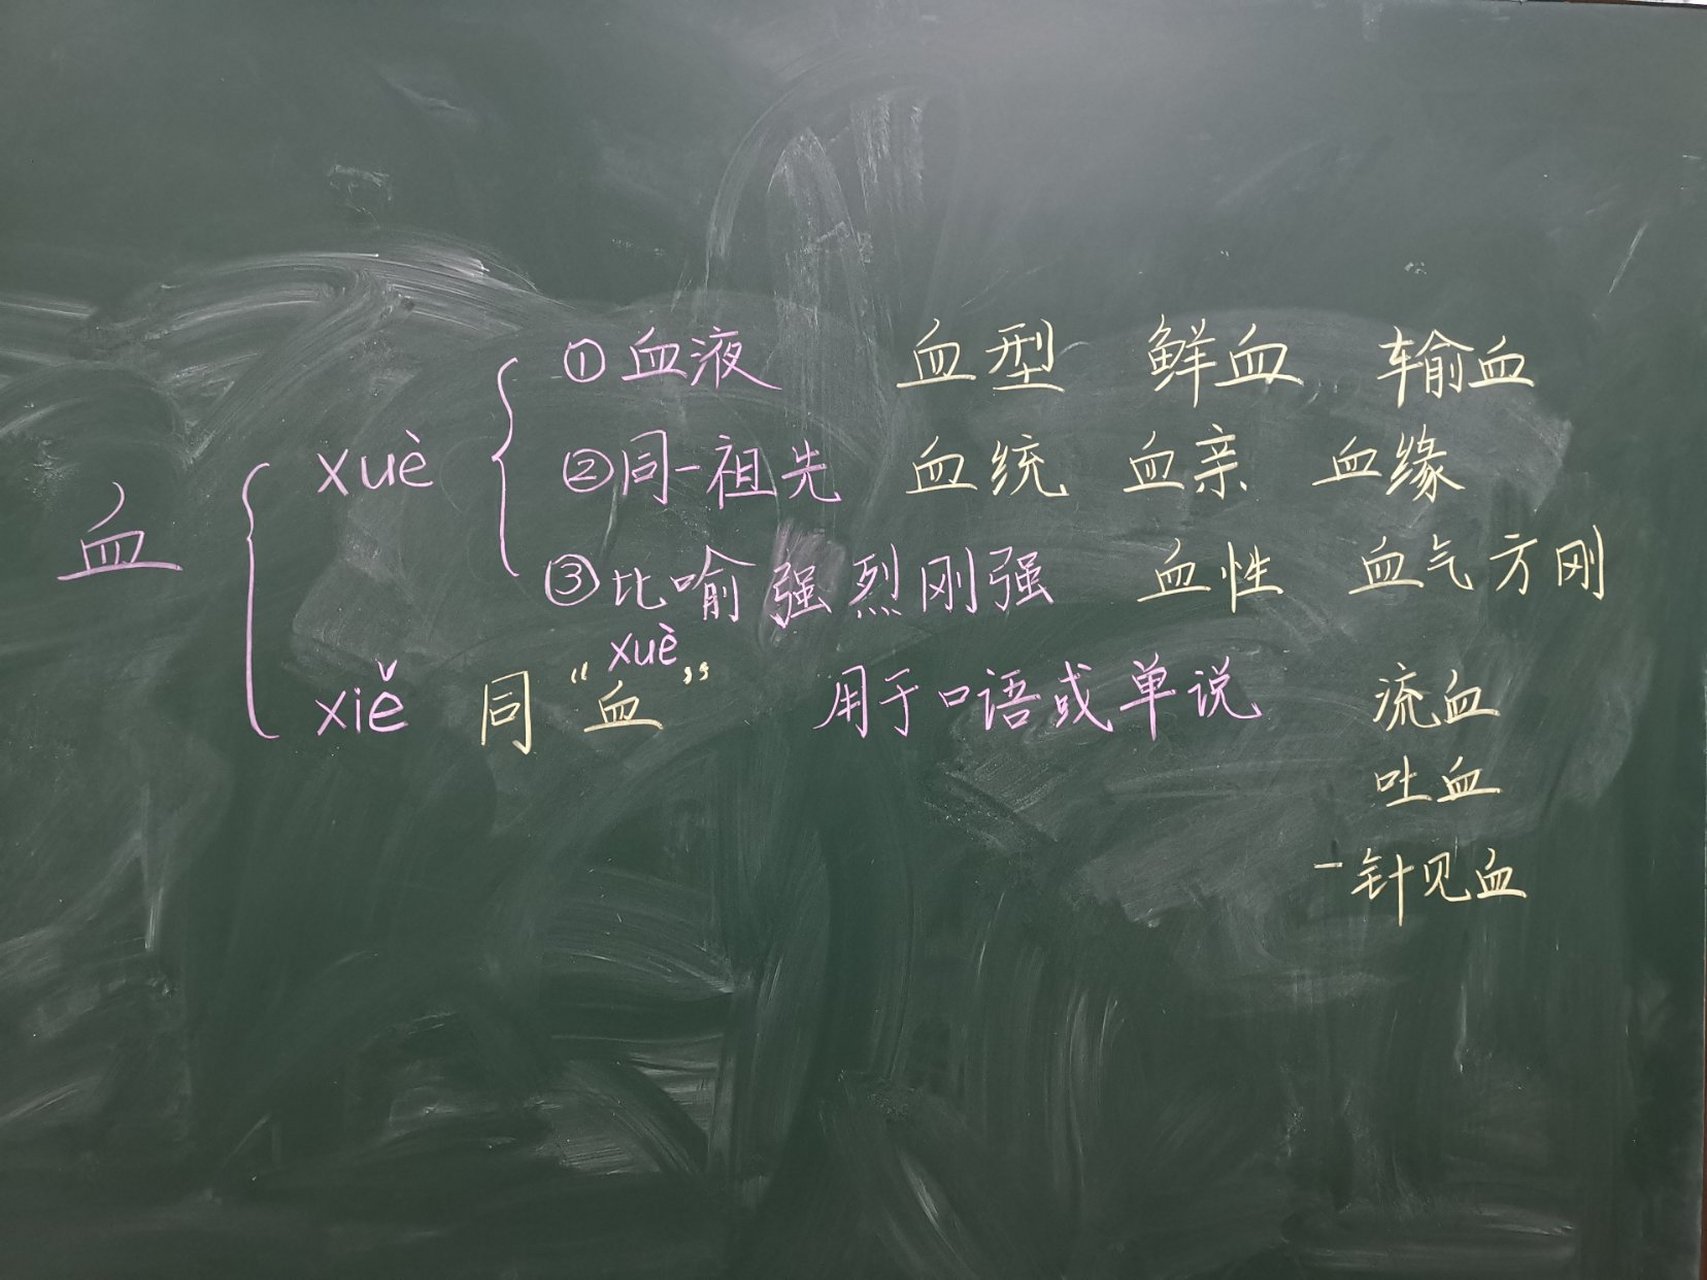 ①血液 血型 鲜血 输血
xuè ②同一祖先 血统 血亲 血缘
血
③比喻强烈刚强 血性 血气方刚
xuè
xiě 同“血” 用于口语或单说 流血
吐血
一针见血